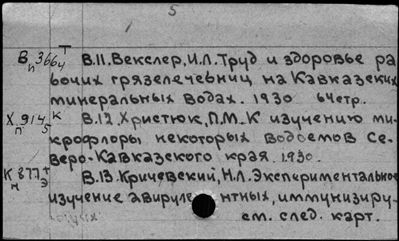 5
Вп366Т4 В.11. Векслер, И.Л. Труд и здоровье ра
бочих грязелечебниц на Кавказских
минеральных водах. 1930 64стр.
Хп914К5 В.12. Христюк, П.М. К изучению ми-
крофлоры некоторых водоемов Се-
веро-Кавказского края. 1930.
Кн877ТЭ В.13. Кричевский, Н.Л. Экспериментальное
изучение авируле нтных, иммунизиру-
см. след. карт.